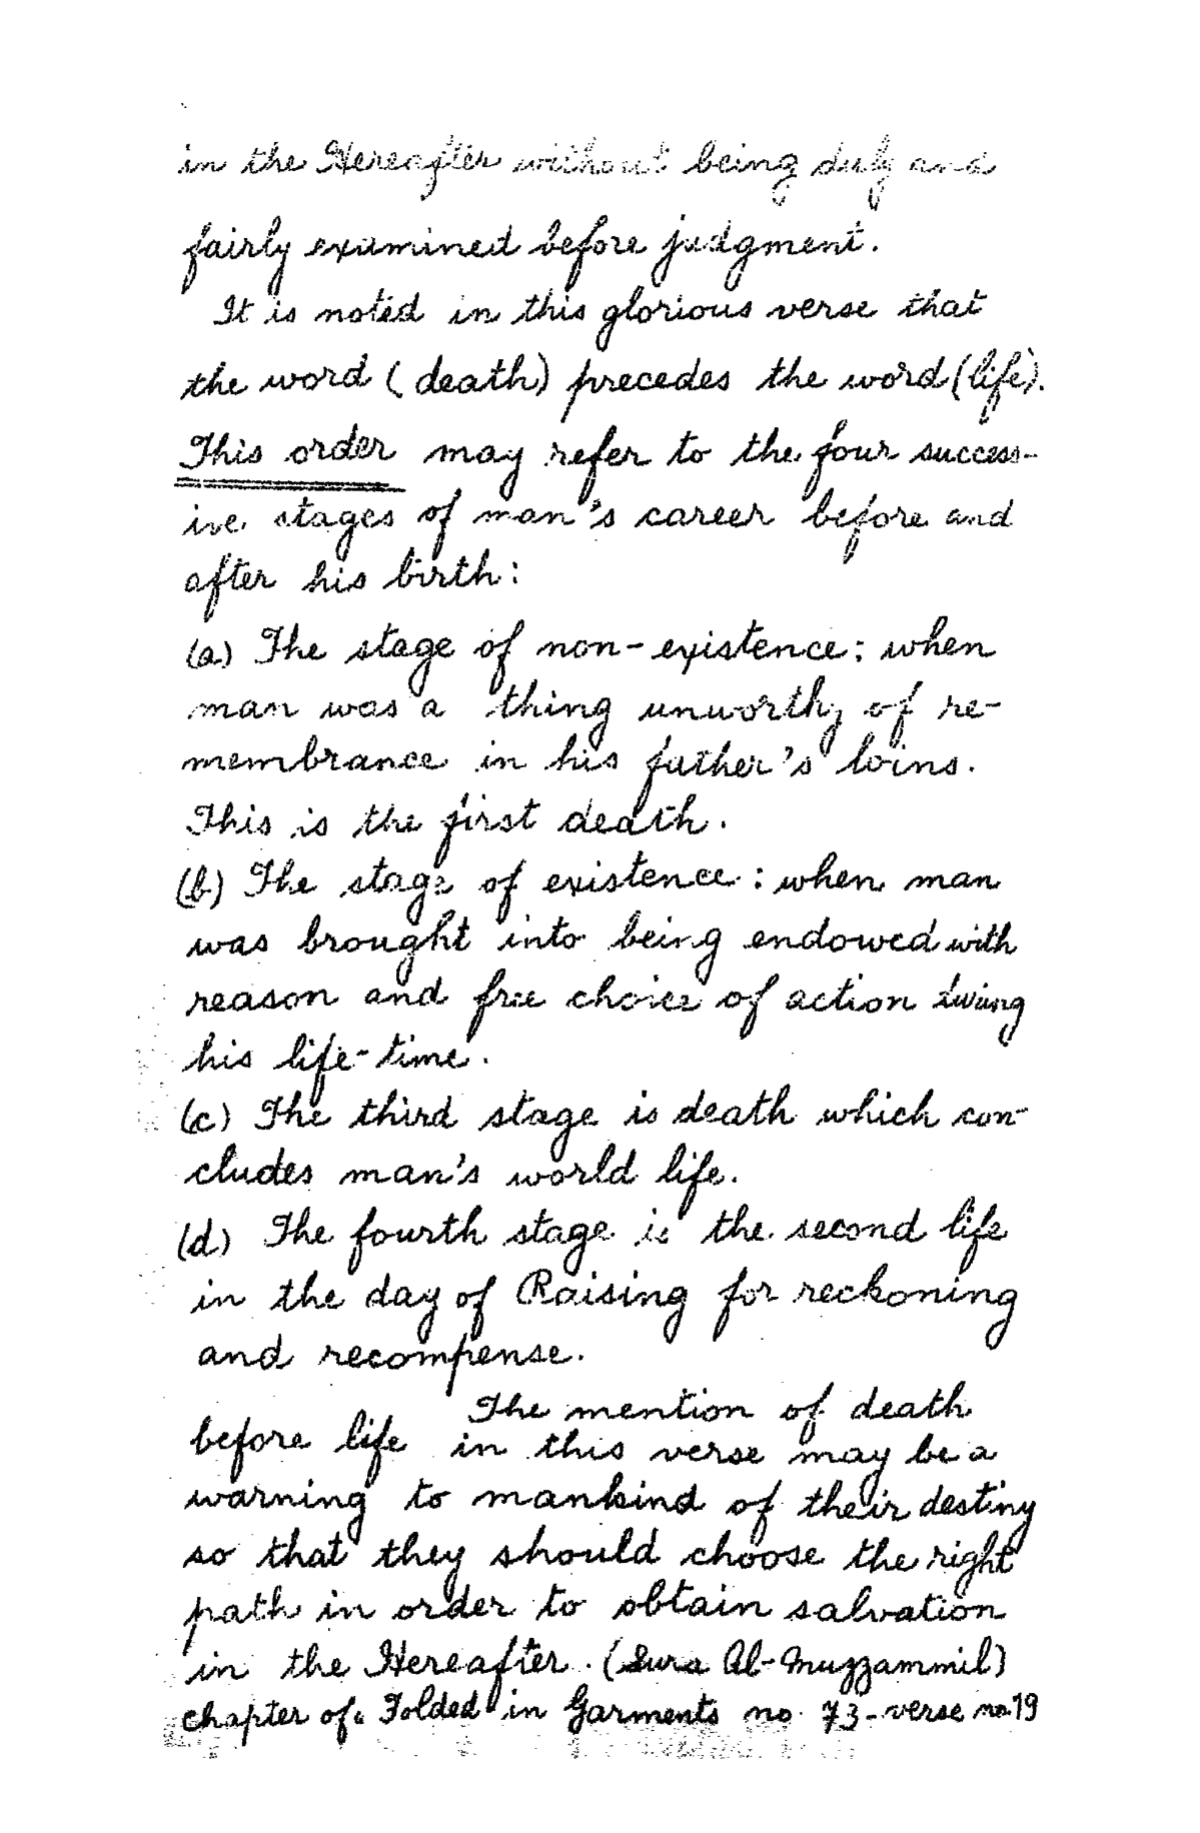 in the Hereafter without being duly and
fairly examined before judgment.
It is noted in this glorious verse that
the word (death) precedes the word (life).
This order may refer to the four success-
ive stages of man's career before and
after his birth:
(a) The stage of non-existence: when
man was a thing unworthy of re-
membrance in his father's loins.
This is the first death.
(b) The stage of existence: when man
was brought into being endowed with
reason and free choice of action during
his life-time.
(c) The third stage is death which con-
cludes man's world life.
(d) The fourth stage is the second life
in the day of Raising for reckoning
and recompense.
The mention of death
before life in this verse may be a
warning to mankind of their destiny
so that they should choose the right
path in order to obtain salvation
in the Hereafter. (Sura Al-Muzzammil)
chapter of Folded in Garments no. 73-verse no.19